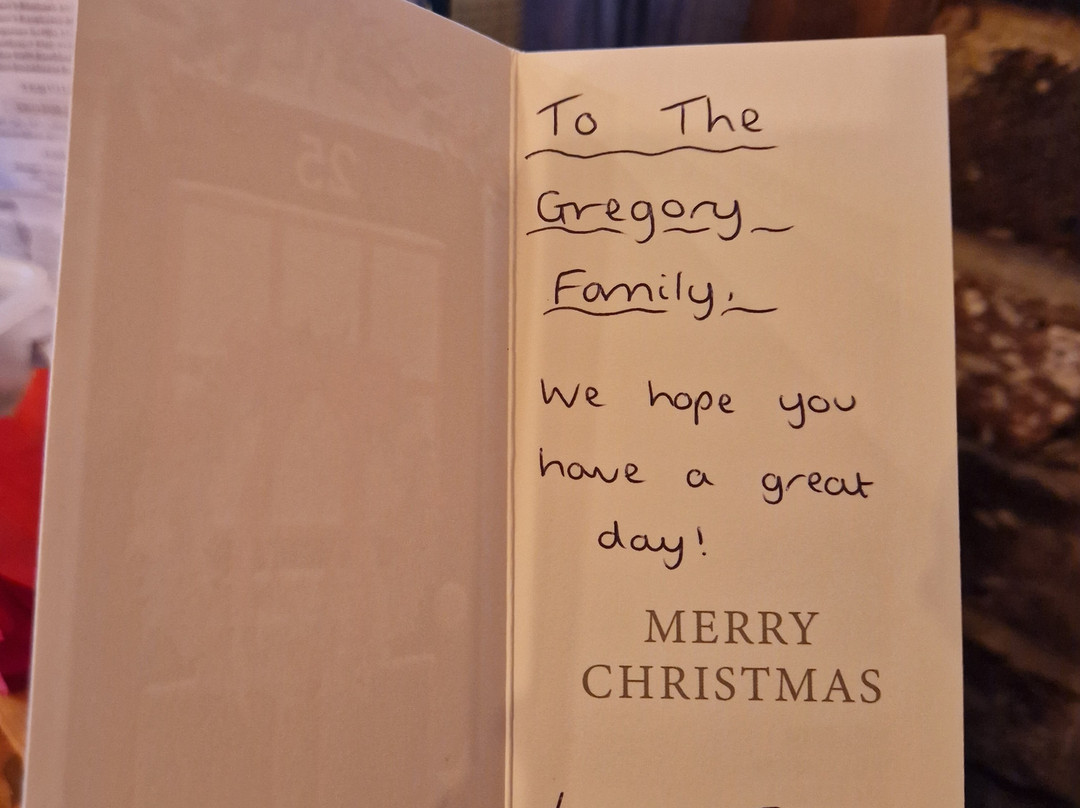 25
To The
Gregory
Family,
We hope you
have a great
day!
MERRY
CHRISTMAS